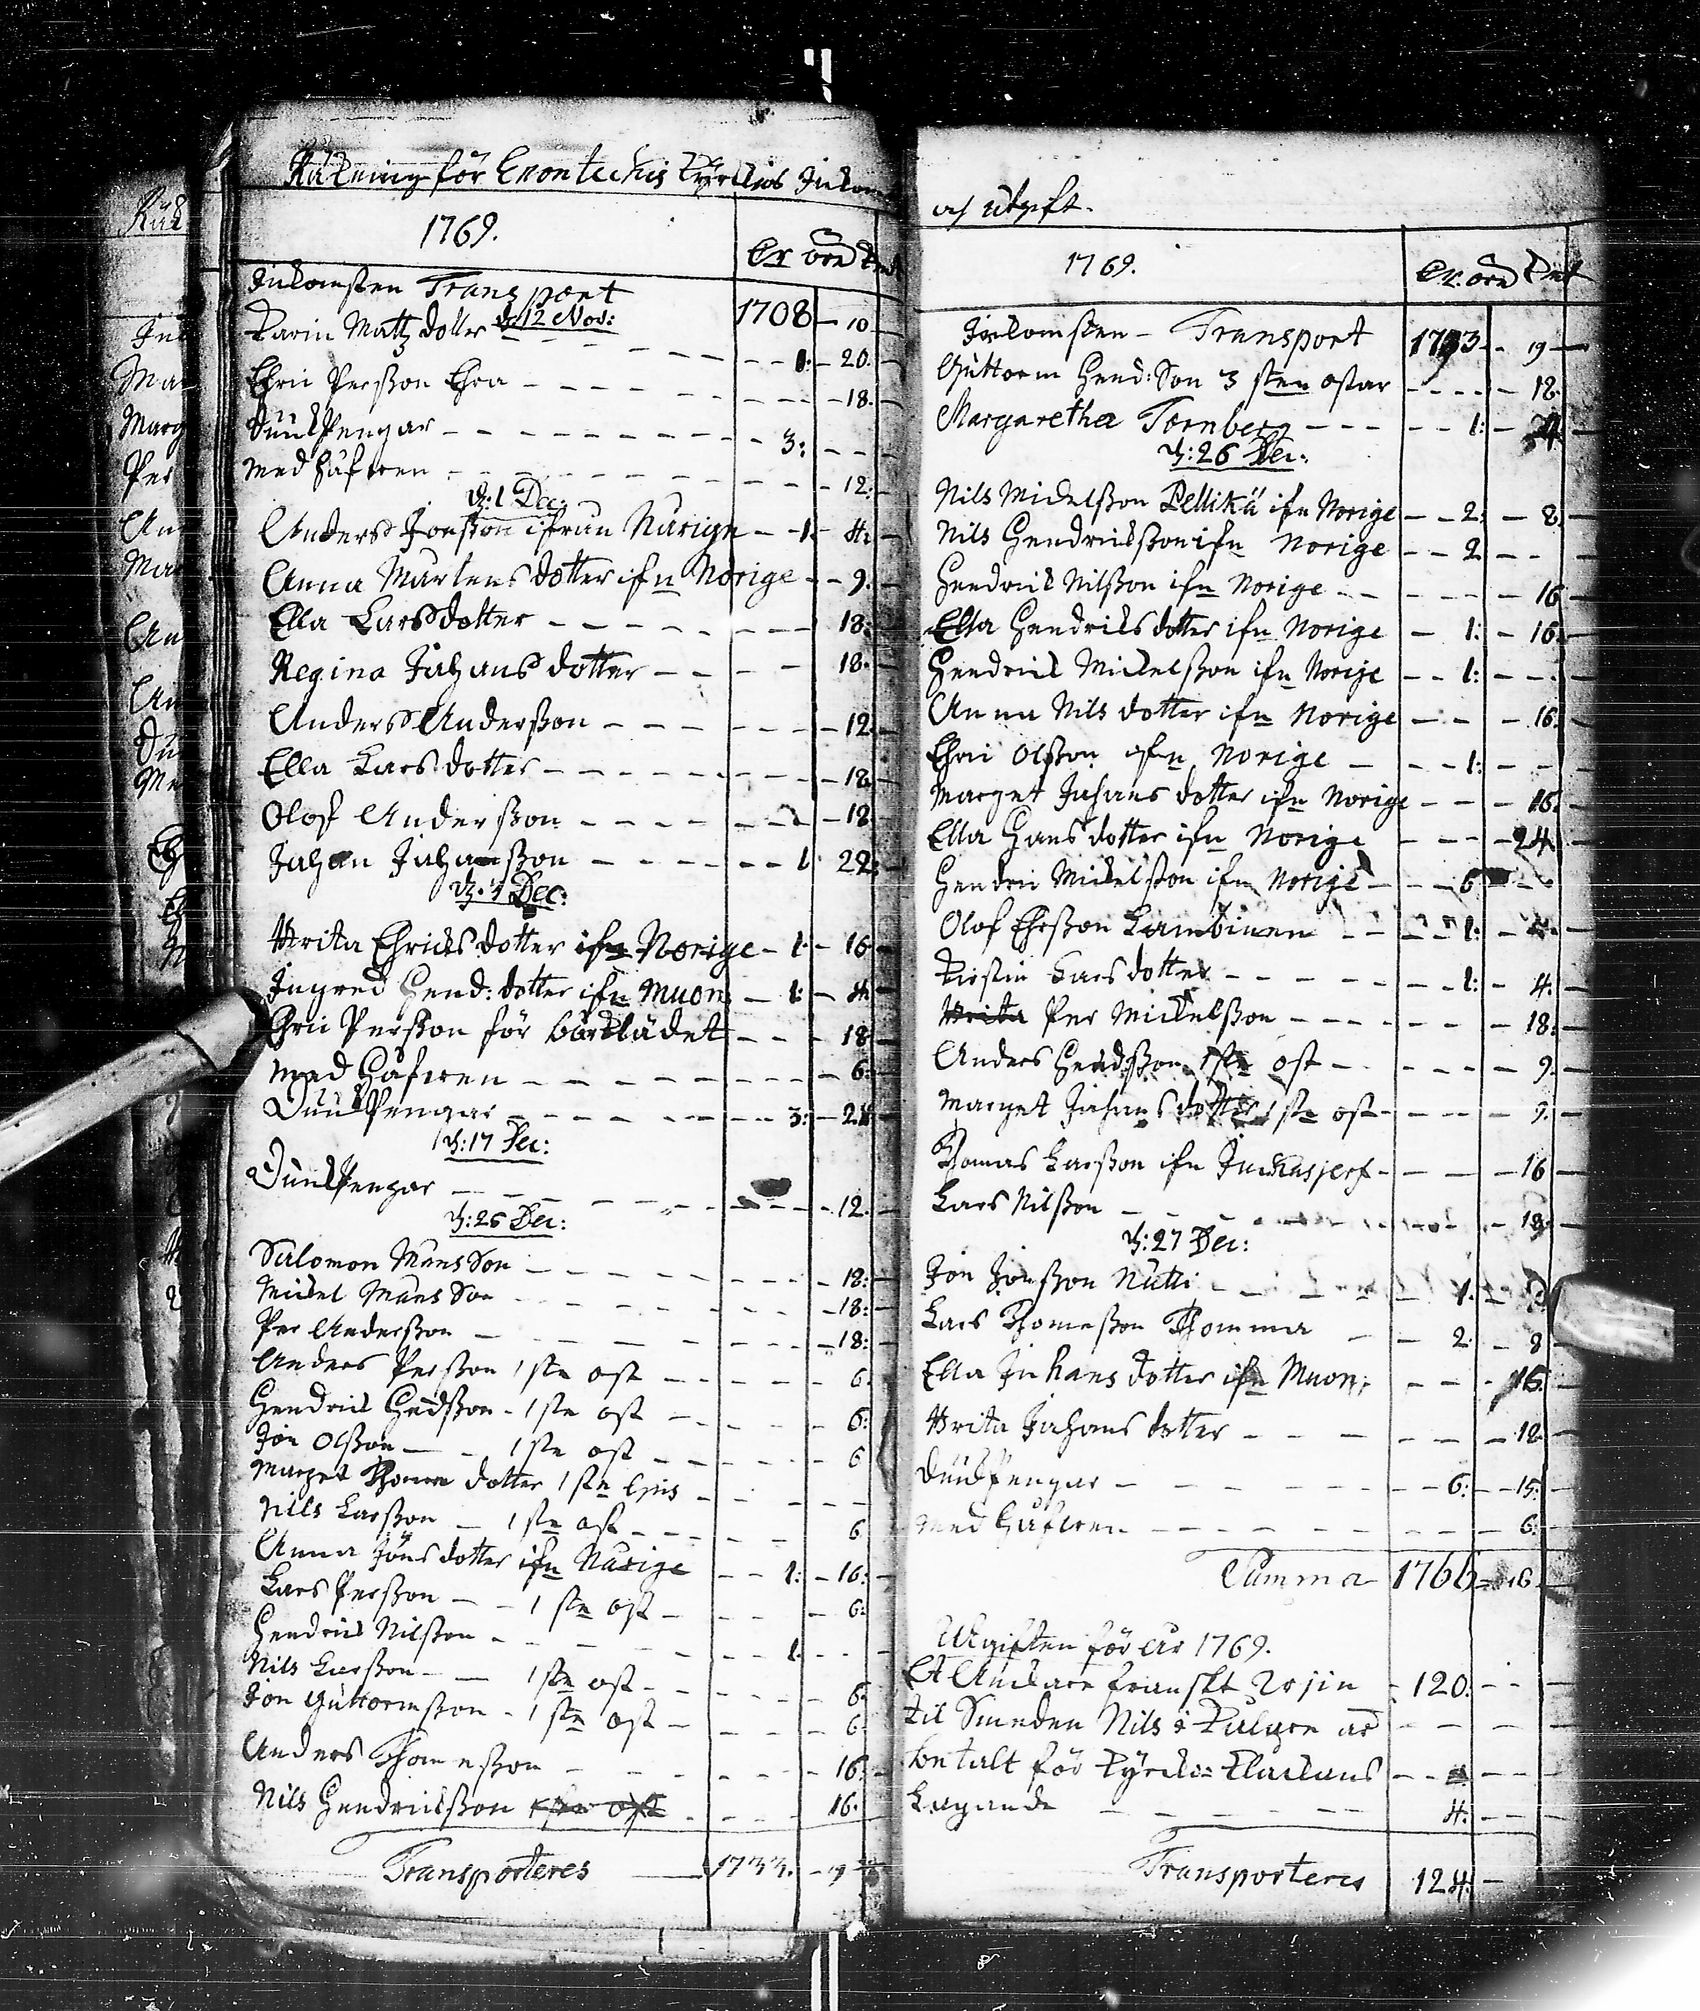 Räkning för Enontechis Kyrckios Inkom
1769.
Cr öre Kmt
Inkomsten Transport 1708 - 10 -
d: 12 Nov:
Karin Matz dotter - - - 1: - 20. -
Ehric Persson - - - 18. -
Pengar - - - 3: - - -
Med Håfwen - - - 12: -
d. 1 Dec:
Anders Jonsson ifrån Norige - 1. 4. -
Anna Mårtens dotter ifn Norige - - 9. -
Ella Larsdotter - - - 18: -
Regina Johans dotter - - - 18. -
Anders Andersson - - - 12. -
Ella Lars dotter - - - 18. -
Olof Andersson - - - 18
Johan Johansson - - - 1. 22:
Dec:
Brita Ehricks dotter ifn Norige - 1. - 16 -
Ingred Hend: dotter ifn Muon: - 1: - 4. -
Ehric Persson för bårklädet - - - 18
Med Håfwen - - - 6:
Pengar - - - 3: - 21
d: 17 Dec:
Pengar - - - 12. -
d: 26 Dec:
Salomon Månsson - - - 18: -
Mickel Månsson - - - 18: -
Per Andersson - - - 18: -
Anders Persson 1 ste ost - - - 6.
Hendrick Hendsson - 1 ste ost - - - 6:
Jon Olsson - - 1 ste ost - - - 6
Marget dotter 1 ste - - -
Nils Larsson - 1 ste ost - - - 6
Anna Jöns dotter ifn Norige - - 1: - 16: -
Lars Persson - - 1 ste ost - - - 6:
Hendrick Nilsson - - - 1. - - -
Nils Larsson - - 1 ste ost - - - 6.
Jon Guttormsson - 1 ste ost - - - 6.
Anders Thomesson - - - 16: -
Nils Hendricksson 1 ste ost - - - 16.
Transporteres - 1733. - 19
och utgift.
1769.
Cr. öre Kmt
Inkomsten - Transport 1733 - 19 -
Guttorm Hend: Son 3 sten ostar - - - 18.
Margaretha Tornberg - - - 1: - 24 -
d: 26 Dec:
Nils Mickelsson Pellikä ifn Norige - - 2: - 8. -
Nils Hendricksson ifn Norige - - 2 - - -
Hendrick Nilsson ifn Norige - - - 16
Ella Hendricks dotter ifn Norige - 1: - 16.
Hendrick Mickelsson ifn Norige - - 1: - - -
Anna Nils dotter ifn Norige - - - 16.
Ehric Olsson ifn Norige - - - 1: - - -
Marget Johans dotter ifn Norige - - - 16:
Ella Hans dotter ifn Norige - - - 24.
Hendric Mickelsson ifn Norige - - 6 - -
Olof Ehrsson Lambinen - - - 1: - 4. -
Kirstin Lars dotter - - - 1: - 4. -
Brita Per Mickelsson - - - 18: -
Anders Hendsson 1 ste ost - - - 9. -
Marget Johans dotter 1 ste ost - - - 9.
Thomas Larsson ifn Juckasjerf - - - 16 -
Lars Nilsson - - - 18:
d: 27 Dec:
Jon Jonsson Nutti - - - 1. -
Lars Thomesson Thomma - - 2. - 8
Ella Johans dotter ifn Muon: - - - 16. -
Brita Johans dotter - - - 12 -
Pengar - - - 6: - 15: -
Med Håfwen - - - 6: -
Summa 1766 - 16 -
Utgiften för År 1769.
Et Anckare franskt Wijn - 120: - - -
til Smeden Nils i
betalt för Kyrckio Klockans - - - -
Lagande - - - 4: - - -
Transporteres 124. -